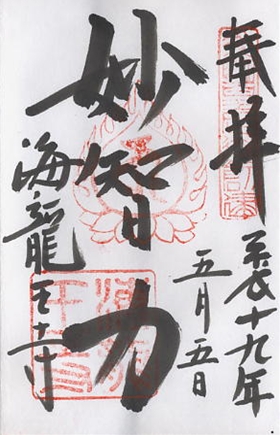 奉拝
平成十九年
五月五日
妙智力
海龍王寺